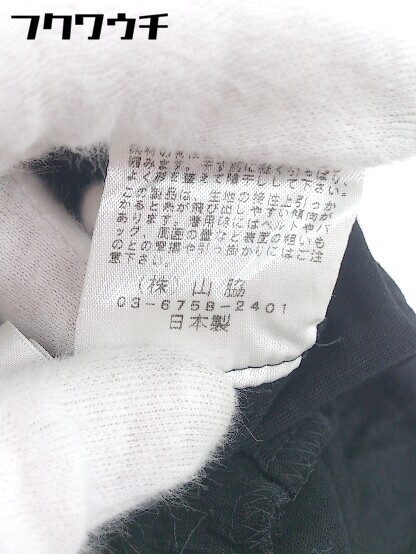 フクワウチ
この製品は、生地の特性上引っか
かりや糸が飛び出しやすい傾向が
あります。着用時にはベルトやバ
ッグ、床面や壁など表面の粗いも
のとの摩擦や引っ掛かりにはご注
意下さい。
(株)山脇
03-6758-2401
日本製